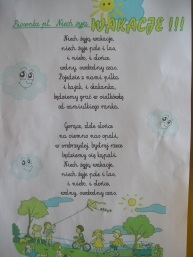 Piosenka pt. Niech żyją WAKACJE !!!
Niech żyją wakacje,
niech żyje pole i las,
i niebo, i słońce,
wolny, swobodny czas.
Pojedzie z nami piłka
i kajak, i skakanka,
będziemy grać w siatkówkę
od samiutkiego ranka.
Gorące, złote słońce
na ciemno nas opali,
w srebrzystej, bystrej rzece
będziemy się kąpali.
Niech żyją wakacje,
niech żyje pole i las,
i niebo, i słońce,
wolny, swobodny czas.